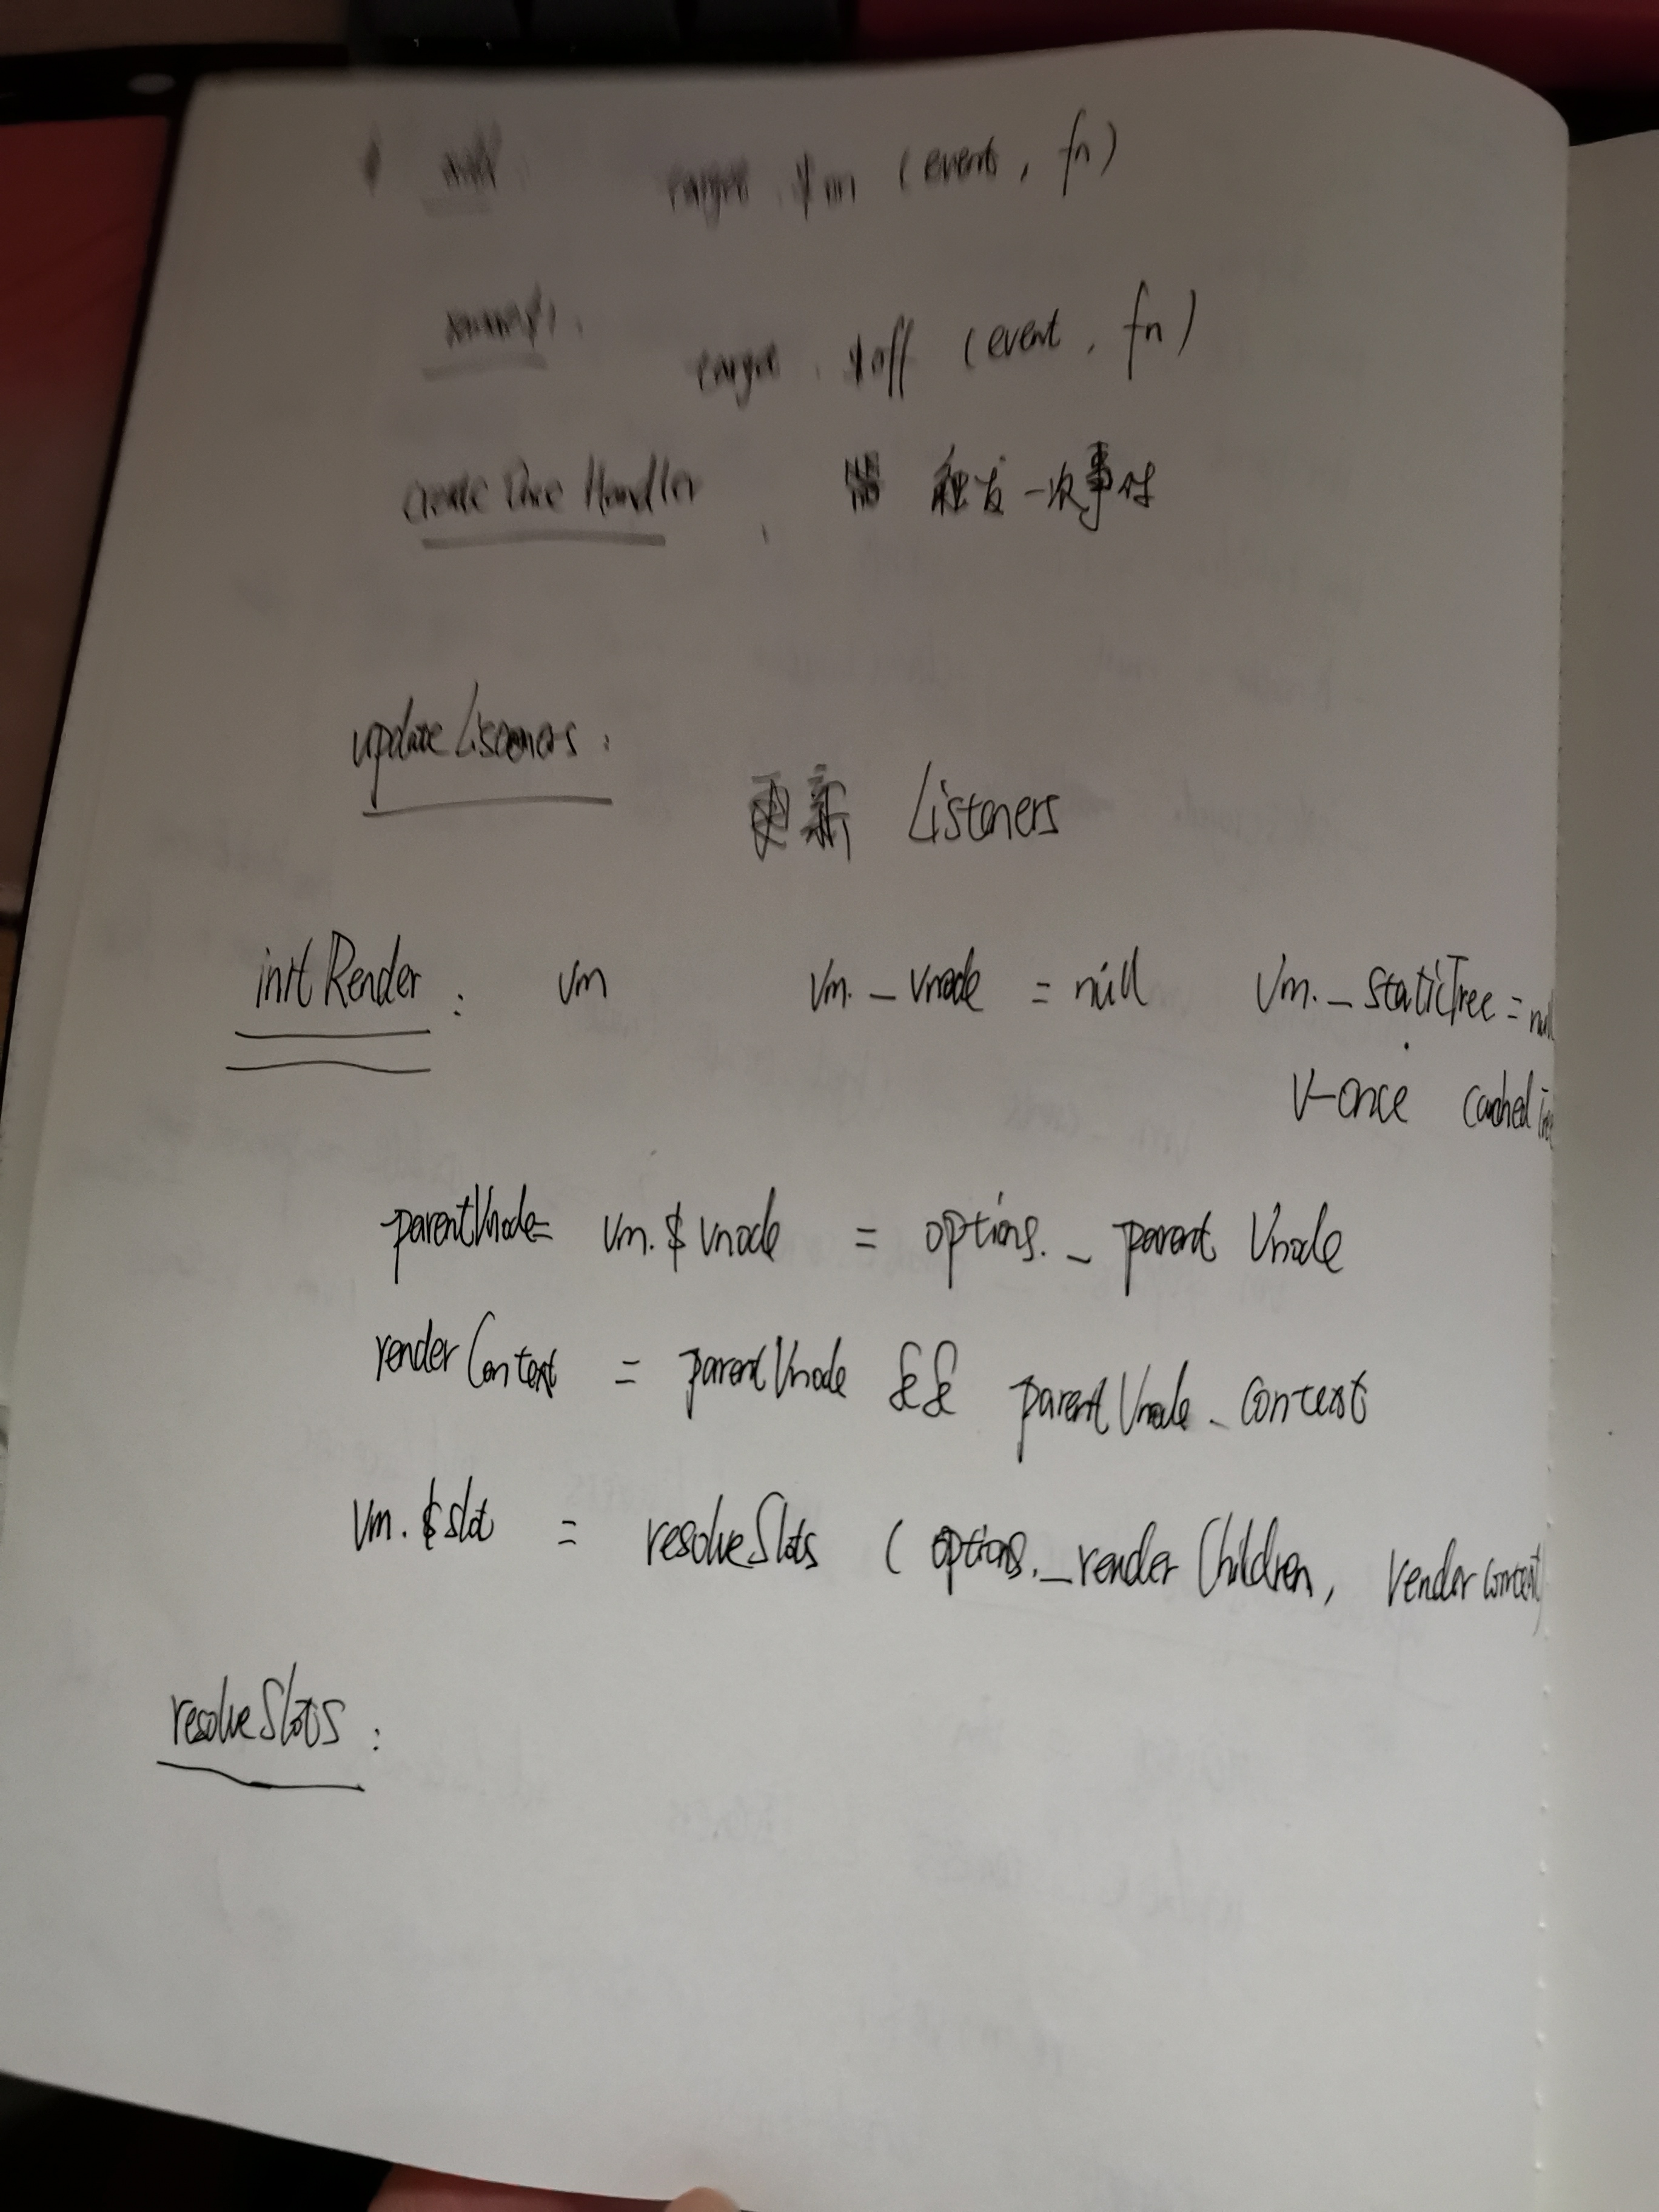 add target.$on (event, fn)
target.$off (event, fn)
createOnceHandler 触发一次事件
updateListeners:
更新 Listeners
initRender: vm vm._vnode = null vm._staticTree = null
v-once cached
parentVnode= vm.$vnode = options._parentVnode
renderContext = parentVnode && parentVnode.context
vm.$slot = resolveSlots (options._renderChildren, renderContext)
resolveSlots: